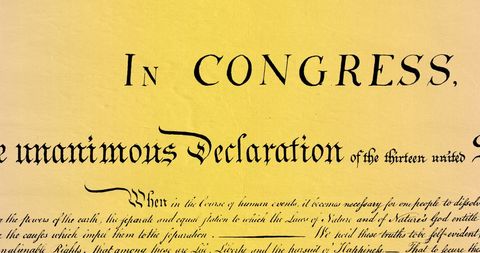 In CONGRESS,
e unanimous Declaration of the thirteen united
When in the Course of human events, it becomes necessary for one people to dissol
the powers of the earth, the separate and equal station to which the Laws of Nature and of Nature's God entitle
the causes which impel them to the separation. ——— We hold these truths to be self-evident,
unalienable Rights, that among these are Life, Liberty and the pursuit of Happiness.— That to secure these